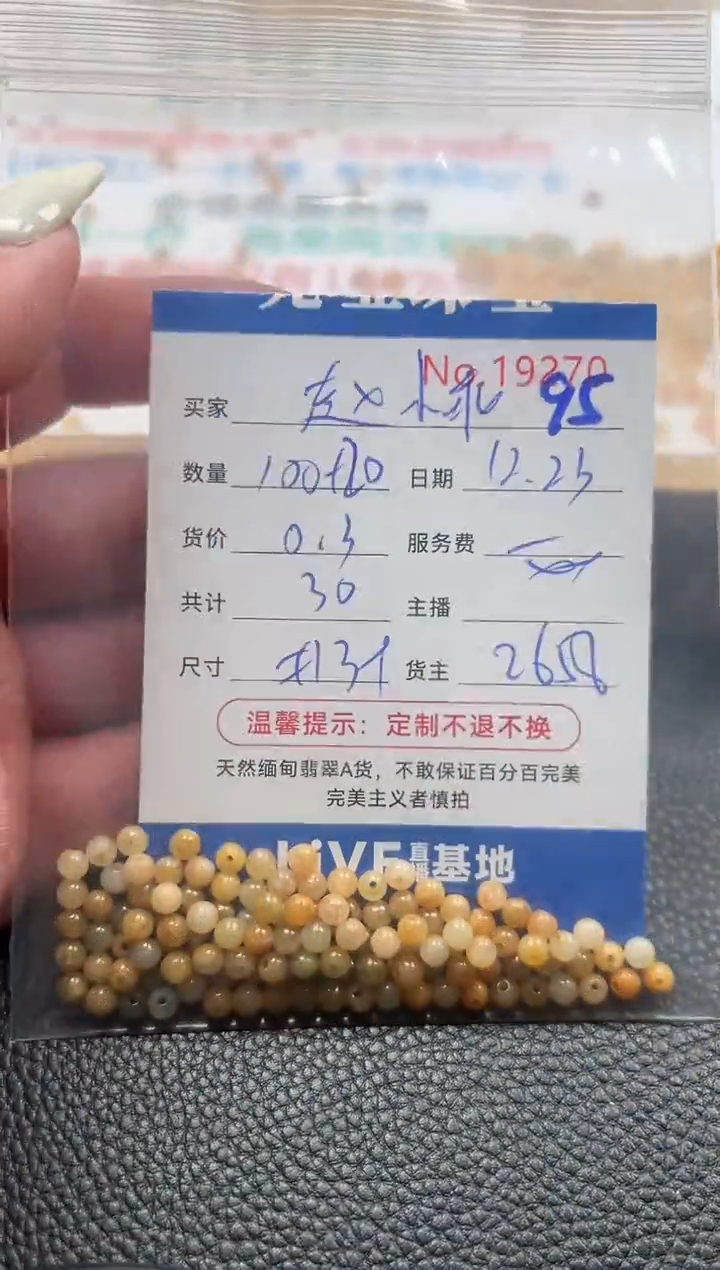 No 19270
买家 赵 小乖 95
数量 100+20 日期 12.23
货价 0.3 服务费
共计 30 主播
尺寸 货主 2658
温馨提示：定制不退不换
天然缅甸翡翠A货，不敢保证百分百完美
完美主义者慎拍
LiVE直播基地